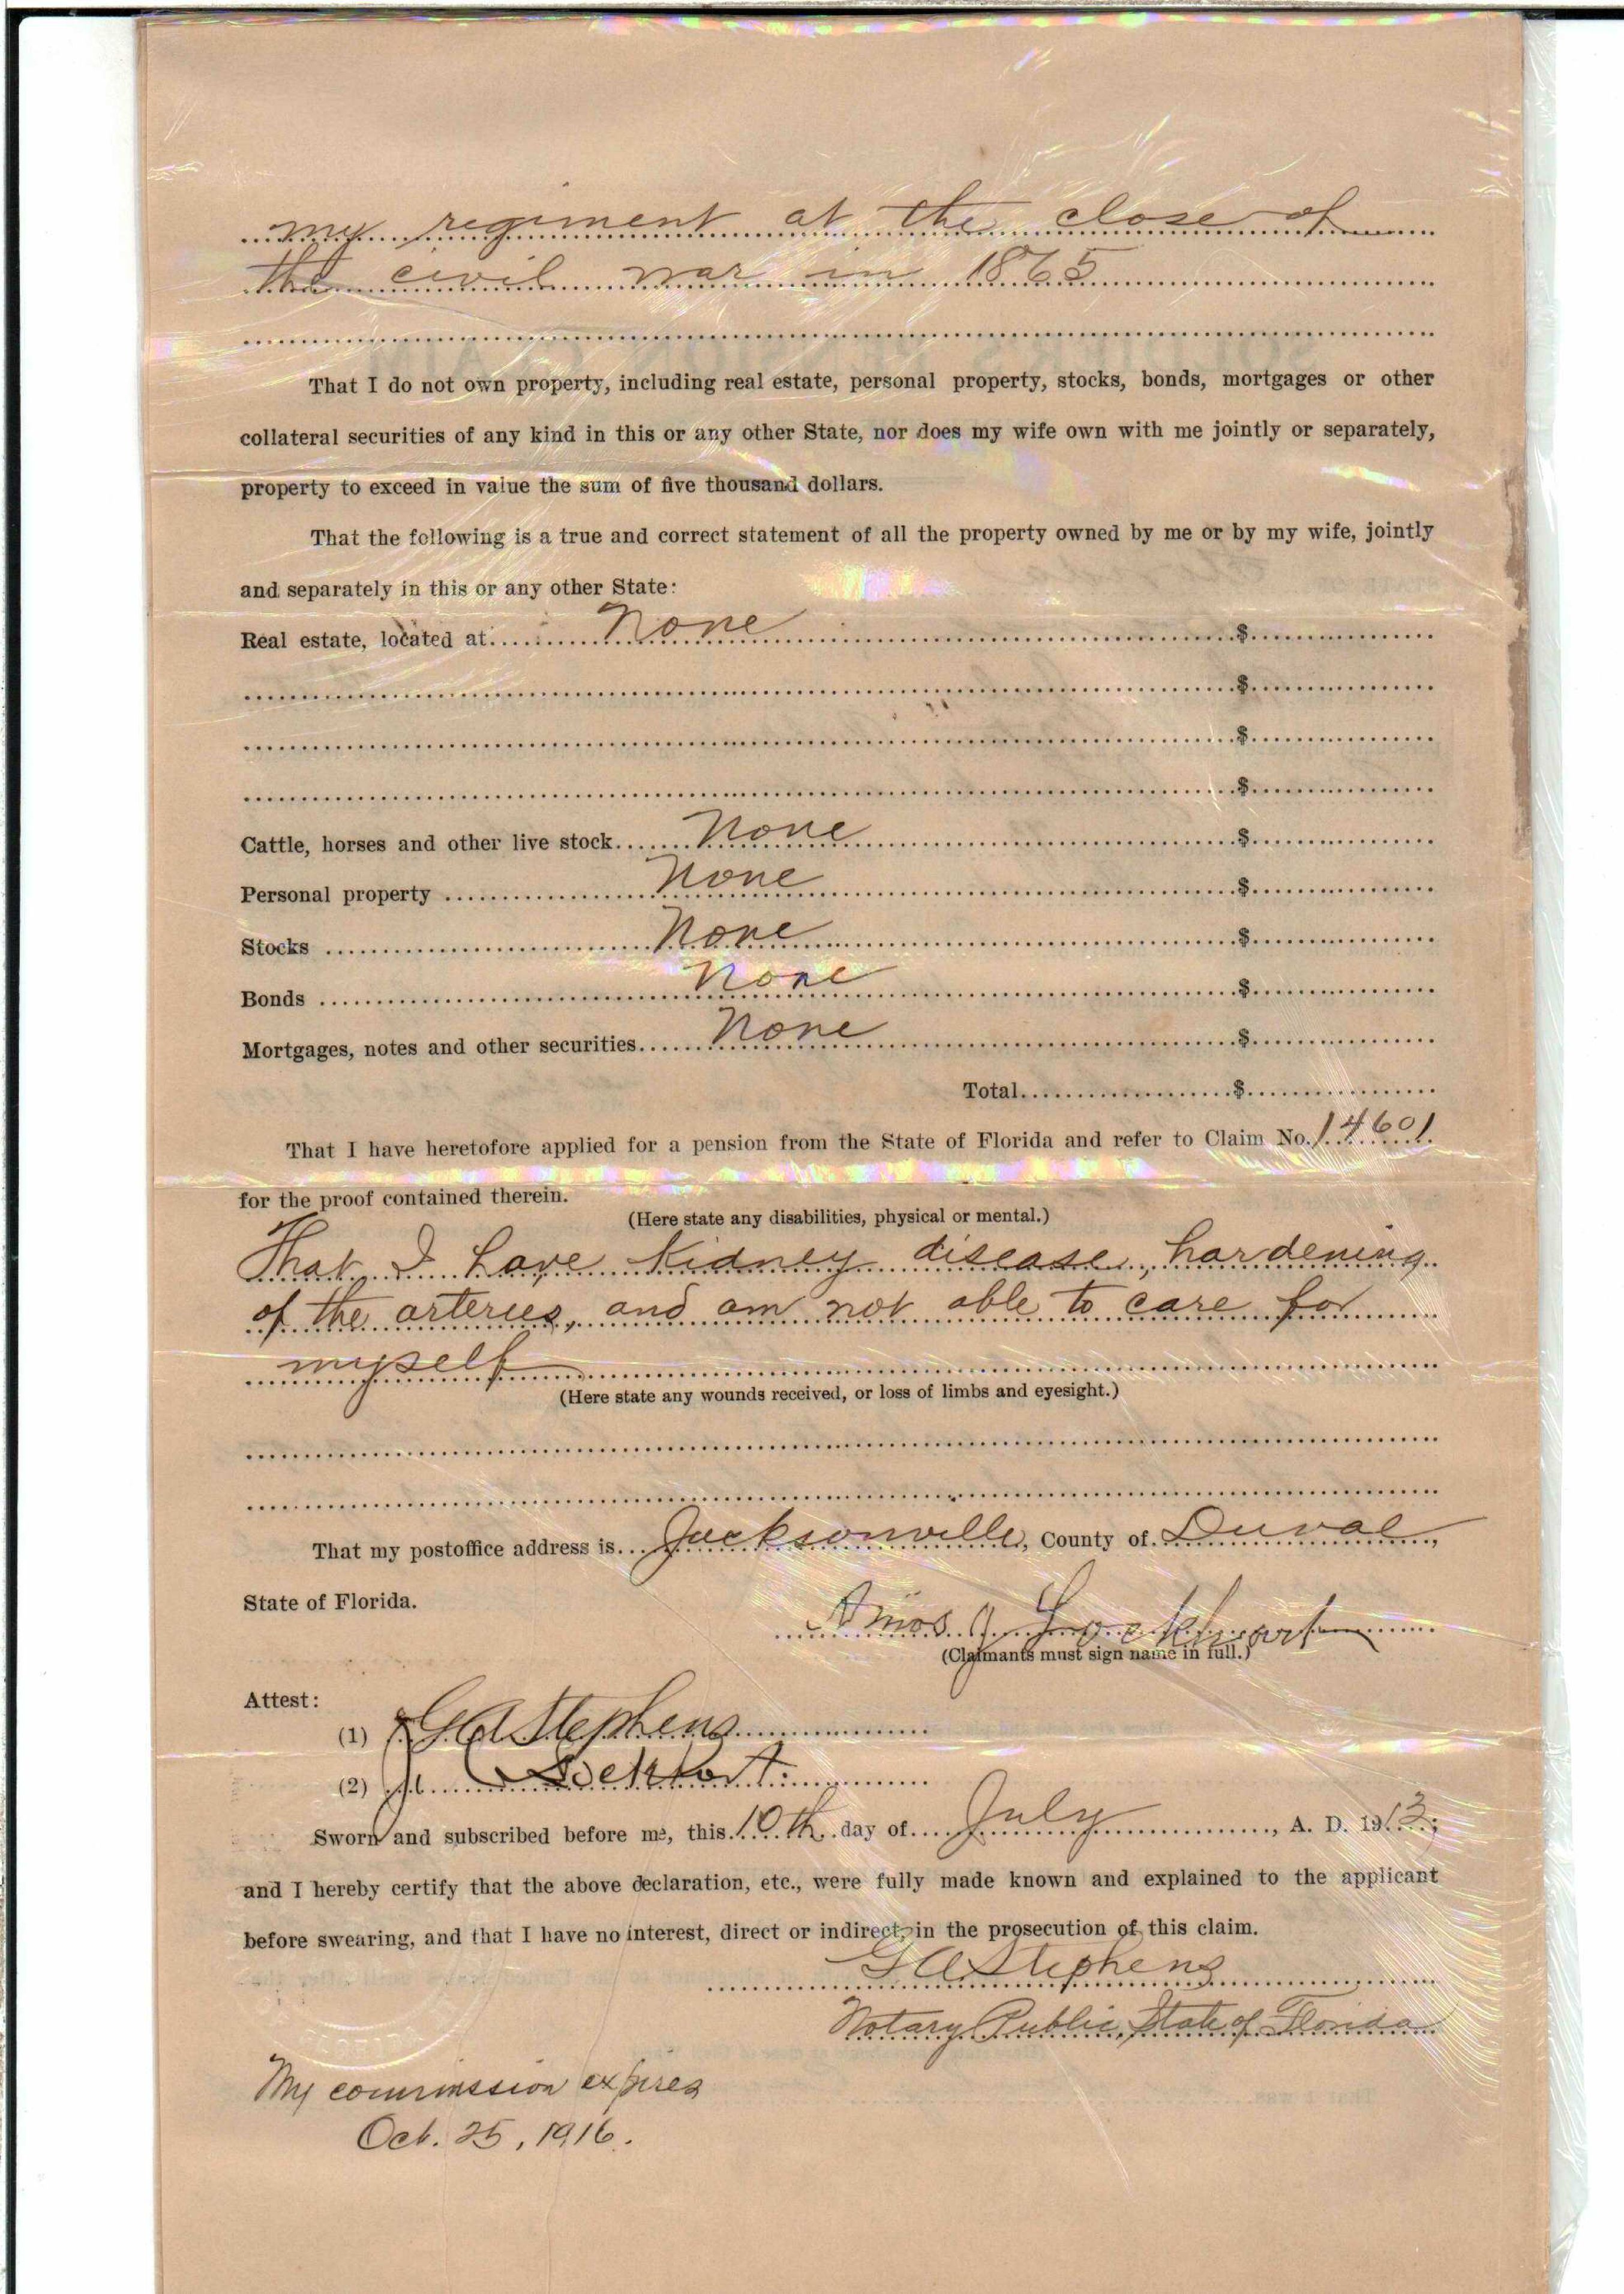 my regiment at the close of
the civil war in 1865
That I do not own property, including real estate, personal property, stocks, bonds, mortgages or other
collateral securities of any kind in this or any other State, nor does my wife own with me jointly or separately,
property to exceed in value the sum of five thousand dollars.
That the following is a true and correct statement of all the property owned by me or by my wife, jointly
and separately in this or any other State:
Real estate, located at None $
$
$
$
Cattle, horses and other live stock None $
Personal property None $
Stocks None $
Bonds None $
Mortgages, notes and other securities None $
Total $
That I have heretofore applied for a pension from the State of Florida and refer to Claim No. 14601
for the proof contained therein.
(Here state any disabilities, physical or mental.)
That I have Kidney disease, hardening
of the arteries, and am not able to care for
myself
(Here state any wounds received, or loss of limbs and eyesight.)
That my postoffice address is Jacksonville, County of Duval,
State of Florida.
Amos J Lockhart
(Claimants must sign name in full.)
Attest:
(1) G A Stephens
(2)
Sworn and subscribed before me, this 10th day of July, A. D. 1913;
and I hereby certify that the above declaration, etc., were fully made known and explained to the applicant
before swearing, and that I have no interest, direct or indirect, in the prosecution of this claim.
G A Stephens
Notary Public, State of Florida
My commission expires
Oct. 25, 1916.